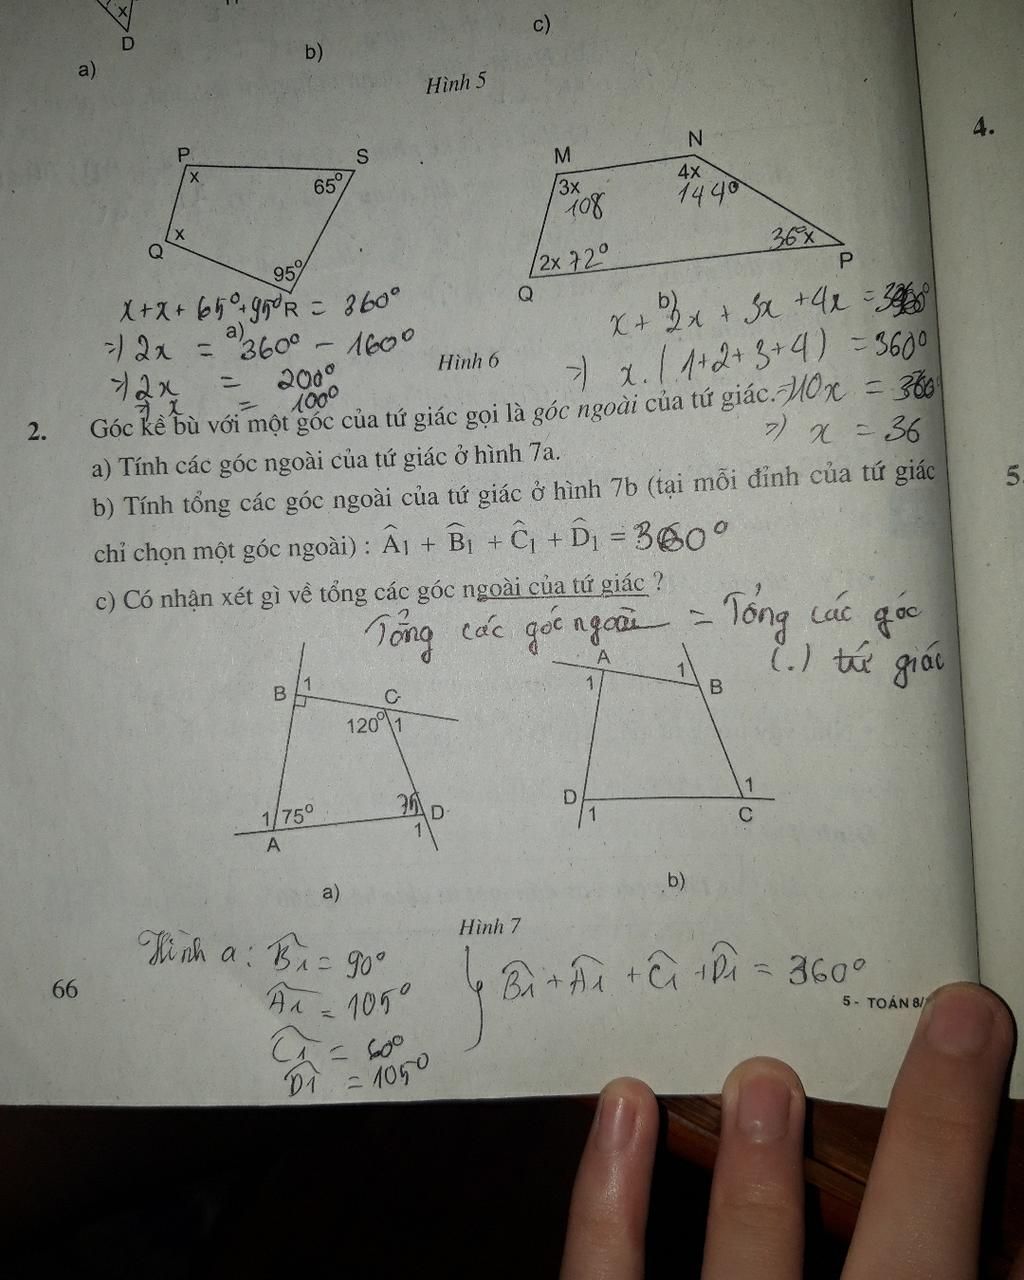 x
D
a)
b)
c)
Hình 5
4.
P
S
x
65°
Q
x
95°
R
M
N
3x
108
4x
144°
2x 72°
36° x
Q
P
x + x + 65° + 95° = 360°
a)
=> 2x = 360° - 160°
=> 2x = 200°
=> x = 100°
b)
x + 2x + 3x + 4x = 360°
=> x. (1+2+3+4) = 360°
=> 10x = 360
=> x = 36
Hình 6
2. Góc kề bù với một góc của tứ giác gọi là góc ngoài của tứ giác.
a) Tính các góc ngoài của tứ giác ở hình 7a.
5.
b) Tính tổng các góc ngoài của tứ giác ở hình 7b (tại mỗi đỉnh của tứ giác
chỉ chọn một góc ngoài) : Â1 + B̂1 + Ĉ1 + D̂1 = 360°
c) Có nhận xét gì về tổng các góc ngoài của tứ giác ?
Tổng các góc ngoài = Tổng các góc
(.) tứ giác
B
1
C
120°
1
1
75°
75
D
A
1
A
1
1
B
D
1
1
C
a)
b)
Hình 7
Hình a: B̂1 = 90°
Â1 = 105°
Ĉ1 = 60°
D̂1 = 105°
B̂1 + Â1 + Ĉ1 + D̂1 = 360°
66
5- TOÁN 8/